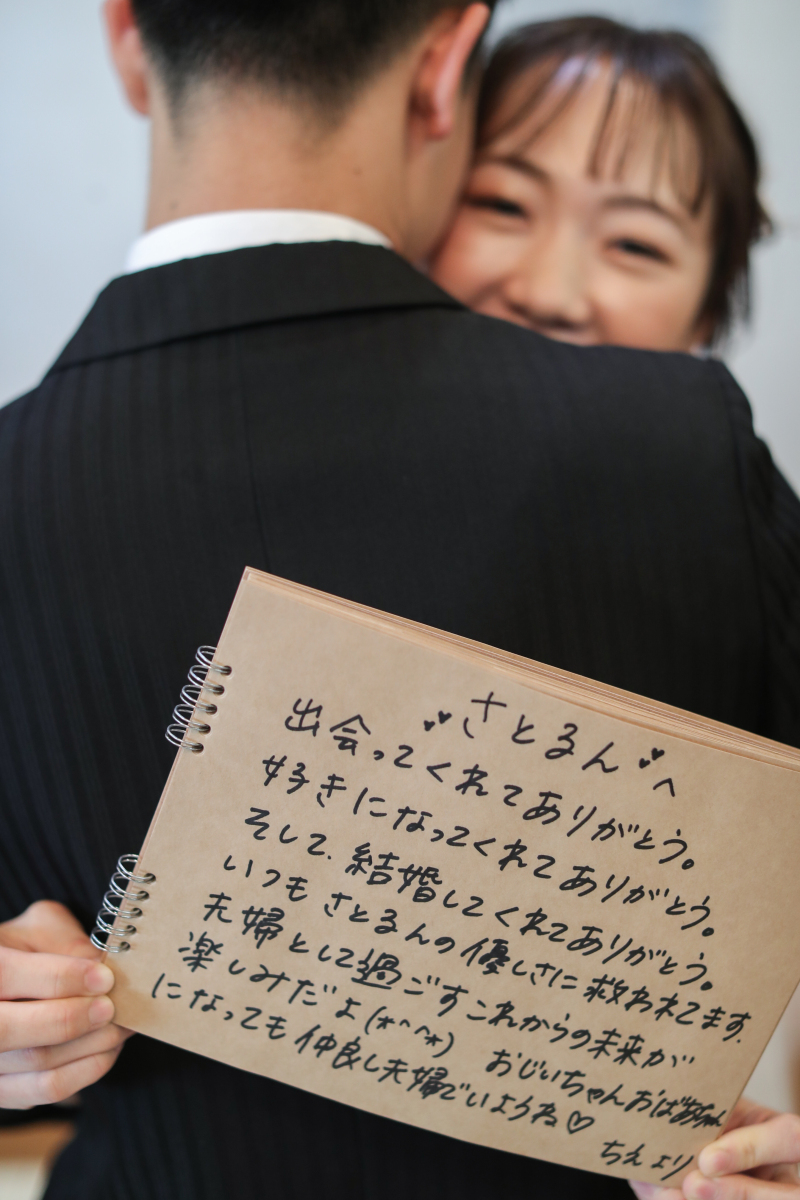 さとるん へ
出会ってくれてありがとう。
好きになってくれてありがとう。
そして、結婚してくれてありがとう。
いつもさとるんの優しさに救われてます。
夫婦として過ごすこれからの未来が
楽しみだよ(*^^*) おじいちゃんおばあちゃん
になっても仲良し夫婦でいようね♡
ちえより